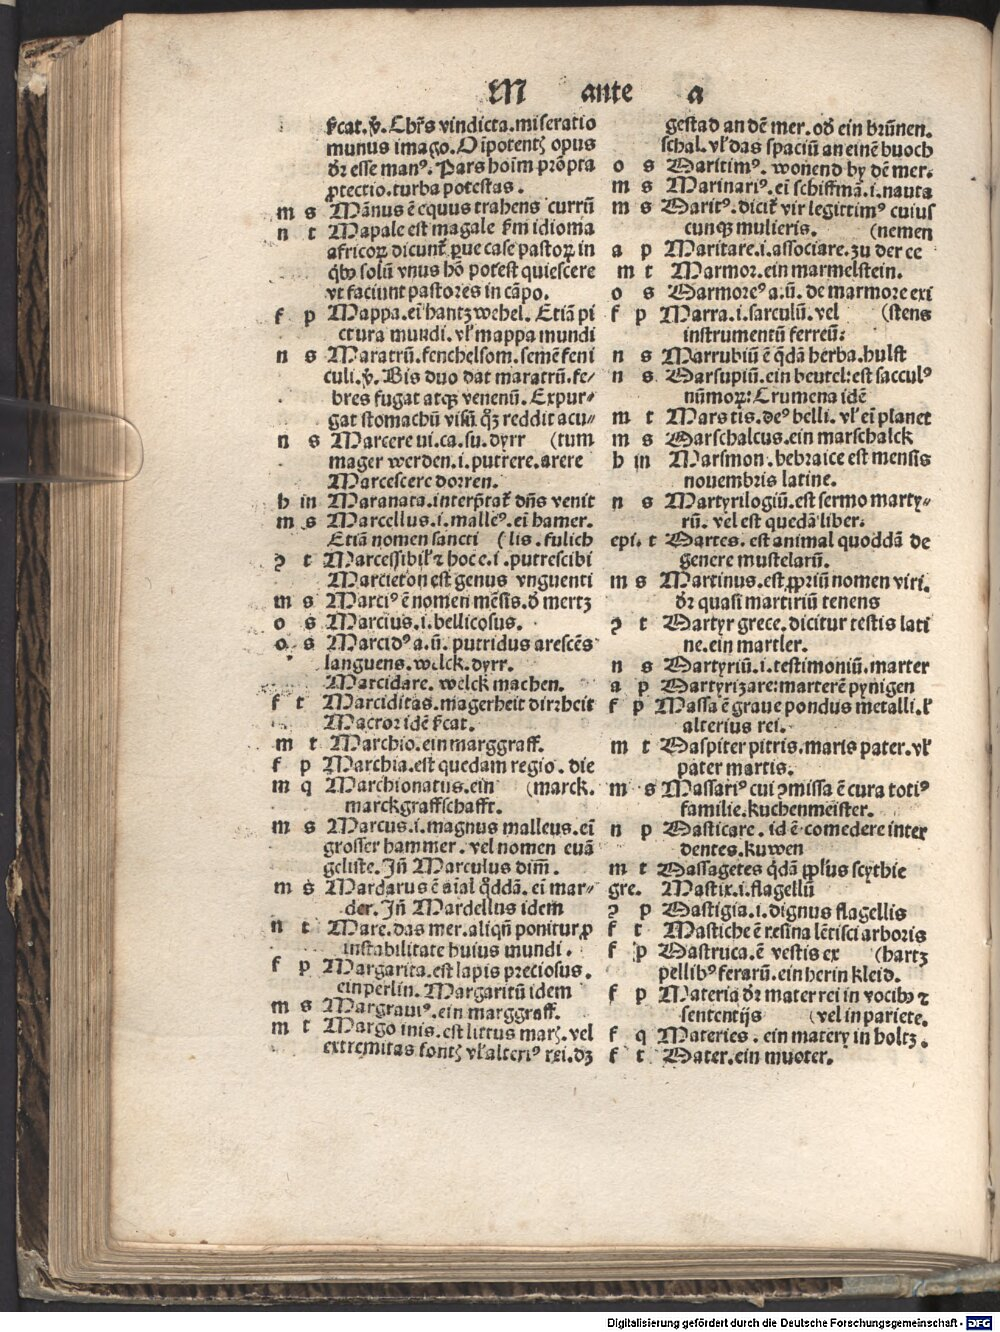 M ante a
ſcat. v̓. Chr̃s vindicta. miſeratio
munus imago. Oĩpotentꝭ opus
dr̃ eſſe manꝰ. Pars hoĩm prõpta
ꝓtectio. turba poteſtas.
m s Mãnus ẽ equus trahens currũ
n t Mapale eſt magale ẜm idioma
africoꝝ dicunt᷑ ꝑue caſe paſtoꝝ in
q̃bꝫ ſolũ vnus hõ poteſt quieſcere
vt faciunt paſtores in cãpo.
f p Mappa. eĩ hantzwehel. Etiã pi
ctura mundi. vl̓ mappa mundi
n s Maratrũ. fenchelſom. ſemẽ feni
culi. v̓. Bis duo dat maratrũ. fe⸗
bres fugat atqꝫ venenũ. Expur⸗
gat ſtomachũ viſũ q̊ꝫ reddit acu⸗
n s Marcere ui. ca. ſu. dyrr (tum
mager werden. i. putrere. arere
Marceſcere dorren.
h in Maranata. interp̃tat᷑ dñs venit
m s Marcellus. i. mallẽꝰ. eĩ hamer.
Etiã nomen ſancti (lis. fulich
ꝯ t Marceſſibil̓ ⁊ hoc e. i. putreſcibi
Marcieton eſt genus vnguenti
m s Marciꝰ ẽ nomen mẽſis. d̓ mertz
o s Marcius. i. bellicoſus.
o s Marcidꝰ a. ũ. putridus areſcẽs
languens. welck. dyrr.
Marcidare. welck machen.
f t Marciditas. magerheit dirrheit
Macror idẽ ſcat.
m t Marchio. ein marggraff.
f p Marchia. eſt quedam regio. die
m q Marchionatus. ein (marck.
marckgraffſchafft.
m s Marcus. i. magnus malleus. eĩ
groſſer hammer. vel nomen euã
geliſte. Iñ Marculus dim̃.
m s Mardarus ẽ aĩal q̊ddã. eĩ mar⸗
der. Iñ Mardellus idem
n t Mare. das mer. aliqñ ponitur ꝓ
inſtabilitate huius mundi.
f p Margarita. eſt lapis precioſus.
ein perlin. Margaritũ idem
m s Margrauiꝰ. ein marggraff.
m t Margo inis. eſt littus marꝭ. vel
extremitas fontꝭ vl̓ alteriꝰ rei. dz
geſtad an dẽ mer. od̓ ein brũnen.
ſchal. vl̓ das ſpaciũ an einẽ buoch
o s Maritimꝰ. wonend by dẽ mer.
m s Marinariꝰ. eĩ ſchiffmã. i. nauta
m s Maritꝰ. dicit᷑ vir legittimꝰ cuius
cunqꝫ mulieris. (nemen
a p Maritare. i. aſſociare. zu der ee
m t Marmor. ein marmelſtein.
o s Marmoreꝰ a. ũ. de marmore exi
f p Marra. i. ſarculũ. vel (ſtens
inſtrumentũ ferreũ.
n s Marrubiũ ẽ q̃dã herba. hulſt
n s Marſupiũ. ein beutel: eſt ſacculꝰ
nũmoꝝ: Crumena idẽ
m t Mars tis. deꝰ belli. vl̓ eĩ planet
m s Marſchalcus. ein marſchalck
h in Marſmon. hebraice eſt menſis
nouembris latine.
n s Martyrilogiũ. eſt ſermo marty⸗
rũ. vel eſt quedã liber.
epi. t Martes. eſt animal quoddã de
genere muſtelarũ.
m s Martinus. eſt ꝓpriũ nomen viri.
dr̃ quaſi martiriũ tenens
ꝯ t Martyr grece. dicitur teſtis lati
ne. ein martler.
n s Martyriũ. i. teſtimoniũ. marter
a p Martyrizare: marterẽ pynigen
f p Maſſa ẽ graue pondus metalli. l̓
alterius rei.
m t Maſpiter pitris. maris pater. vl̓
pater martis.
m s Maſſariꝰ cui ꝯmiſſa ẽ cura totiꝰ
familie. kuchenmeiſter.
n p Maſticare. id ẽ comedere inter
dentes. kuwen
m t Maſſagetes q̃dã ꝓpl̓us ſcythie
gre. Maſtix. i. flagellũ
ꝯ p Maſtigia. i. dignus flagellis
f t Maſtiche ẽ reſina lẽtiſci arboris
f p Maſtruca. ẽ veſtis ex (hartz
pellibꝰ ferarũ. ein herin kleid.
f p Materia dr̃ mater rei in vocibꝫ ⁊
ſententijs (vel in pariete.
f q Materies. ein matery in holtz.
f t Mater. ein muoter.
Digitalisierung gefördert durch die Deutsche Forschungsgemeinschaft - DFG